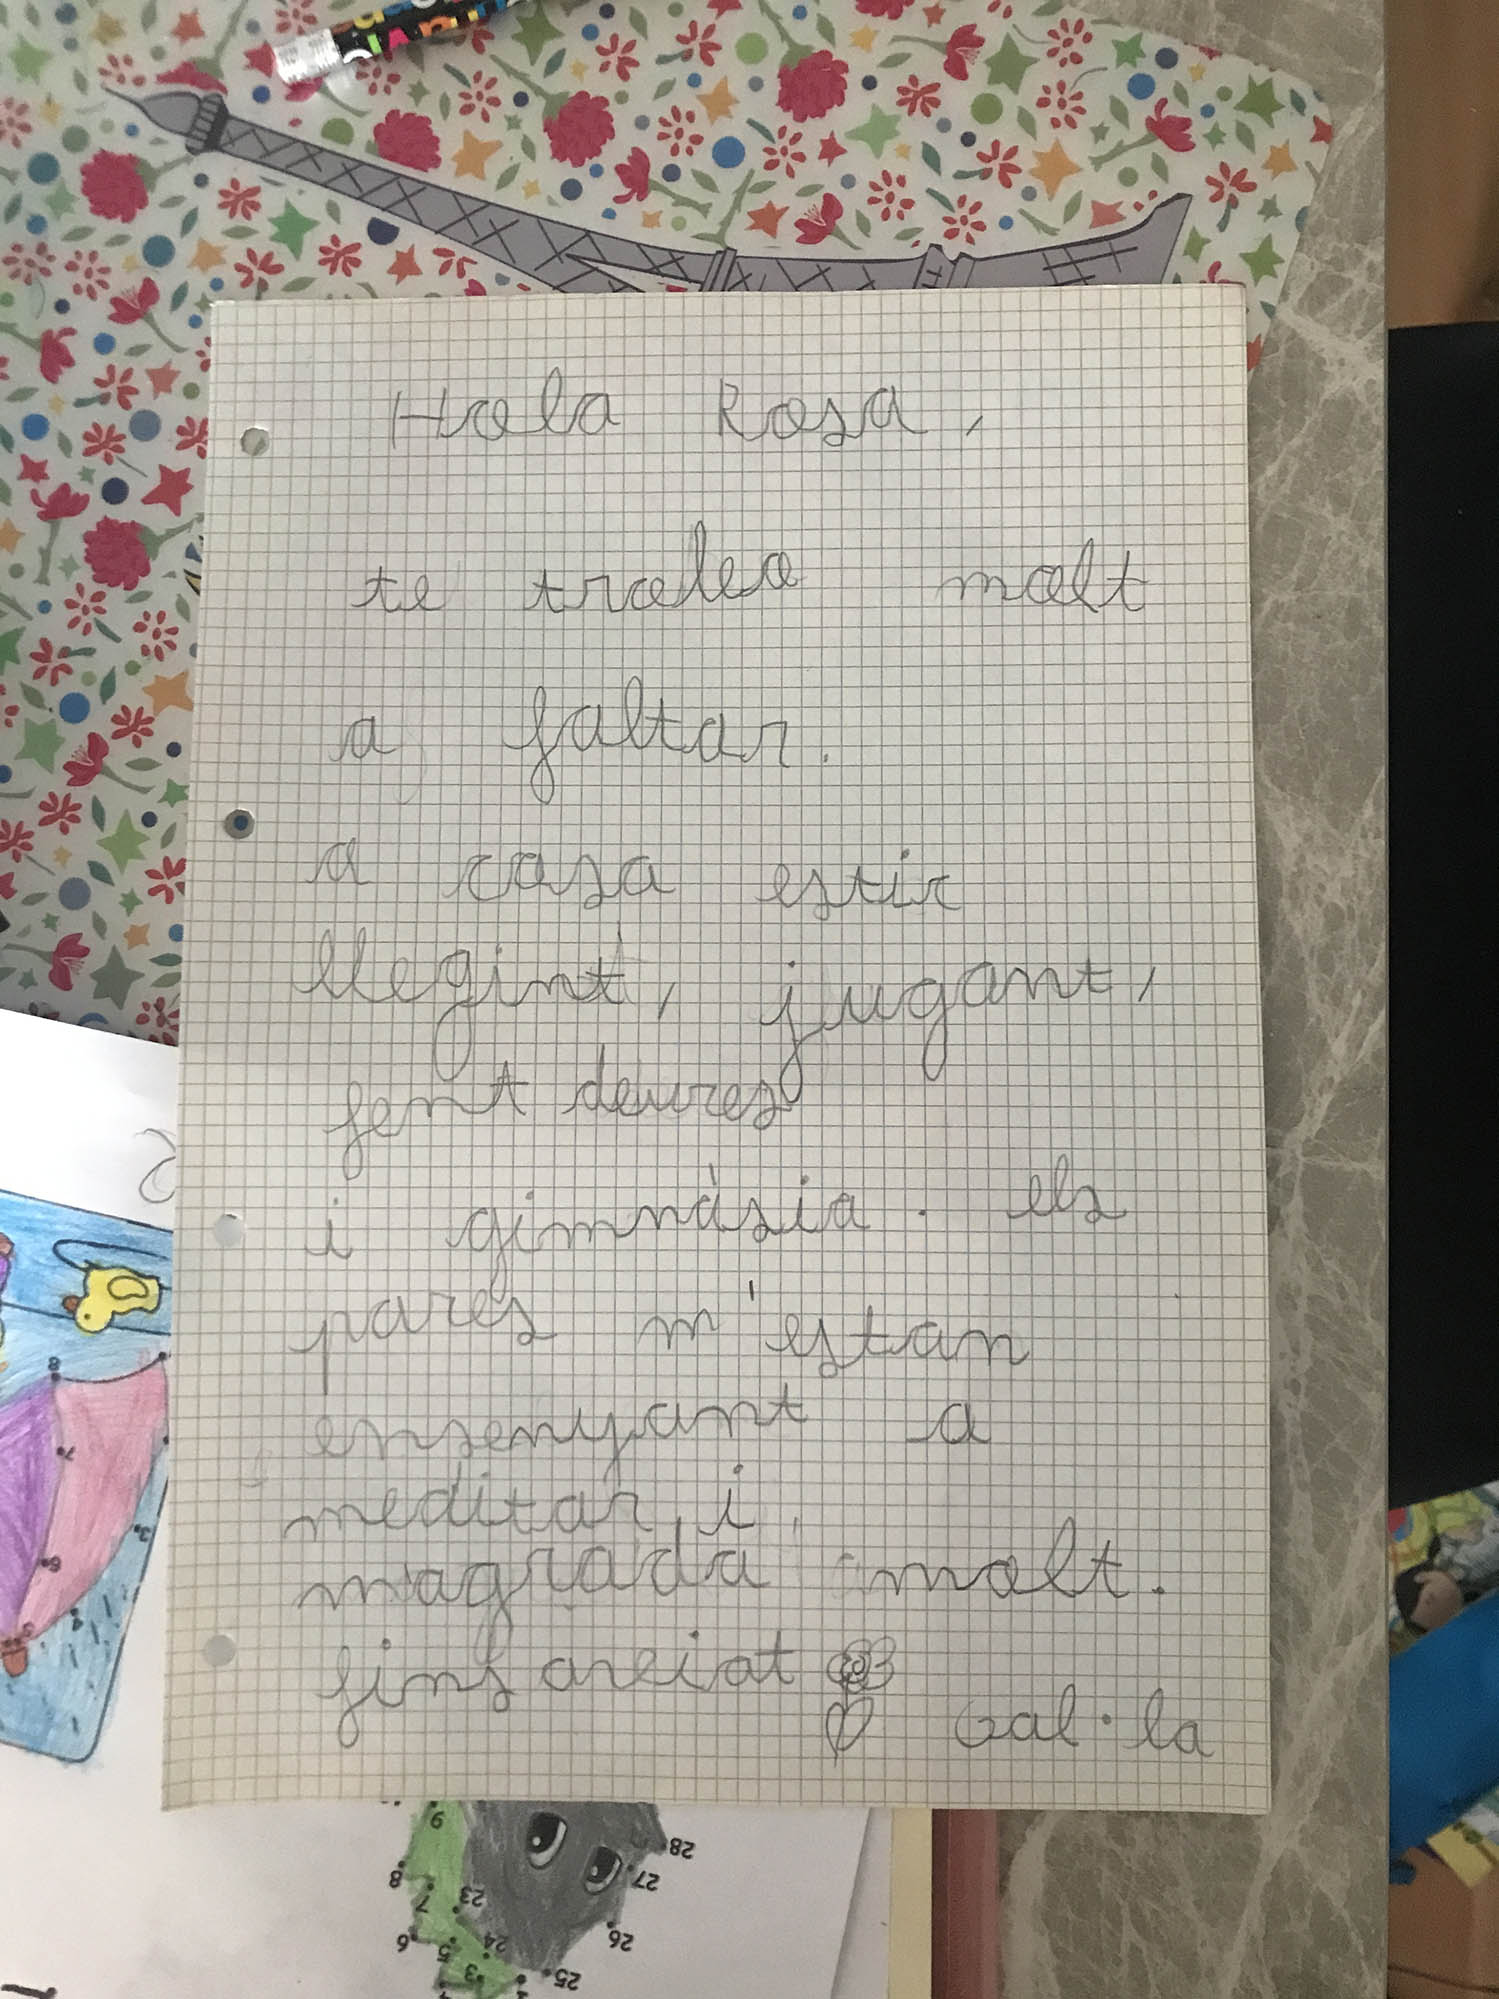 Hola Rosa,
te troleo molt
a faltar.
a casa estic
llegint, jugant,
fent deures
i gimnàsia. els
pares m'estan
ensenyant a
meditar i
m'agrada molt.
fins areiat
Gal·la
8
7
6
5
3
4
9
8
7
6
5
4
3
23
24
25
26
27
28